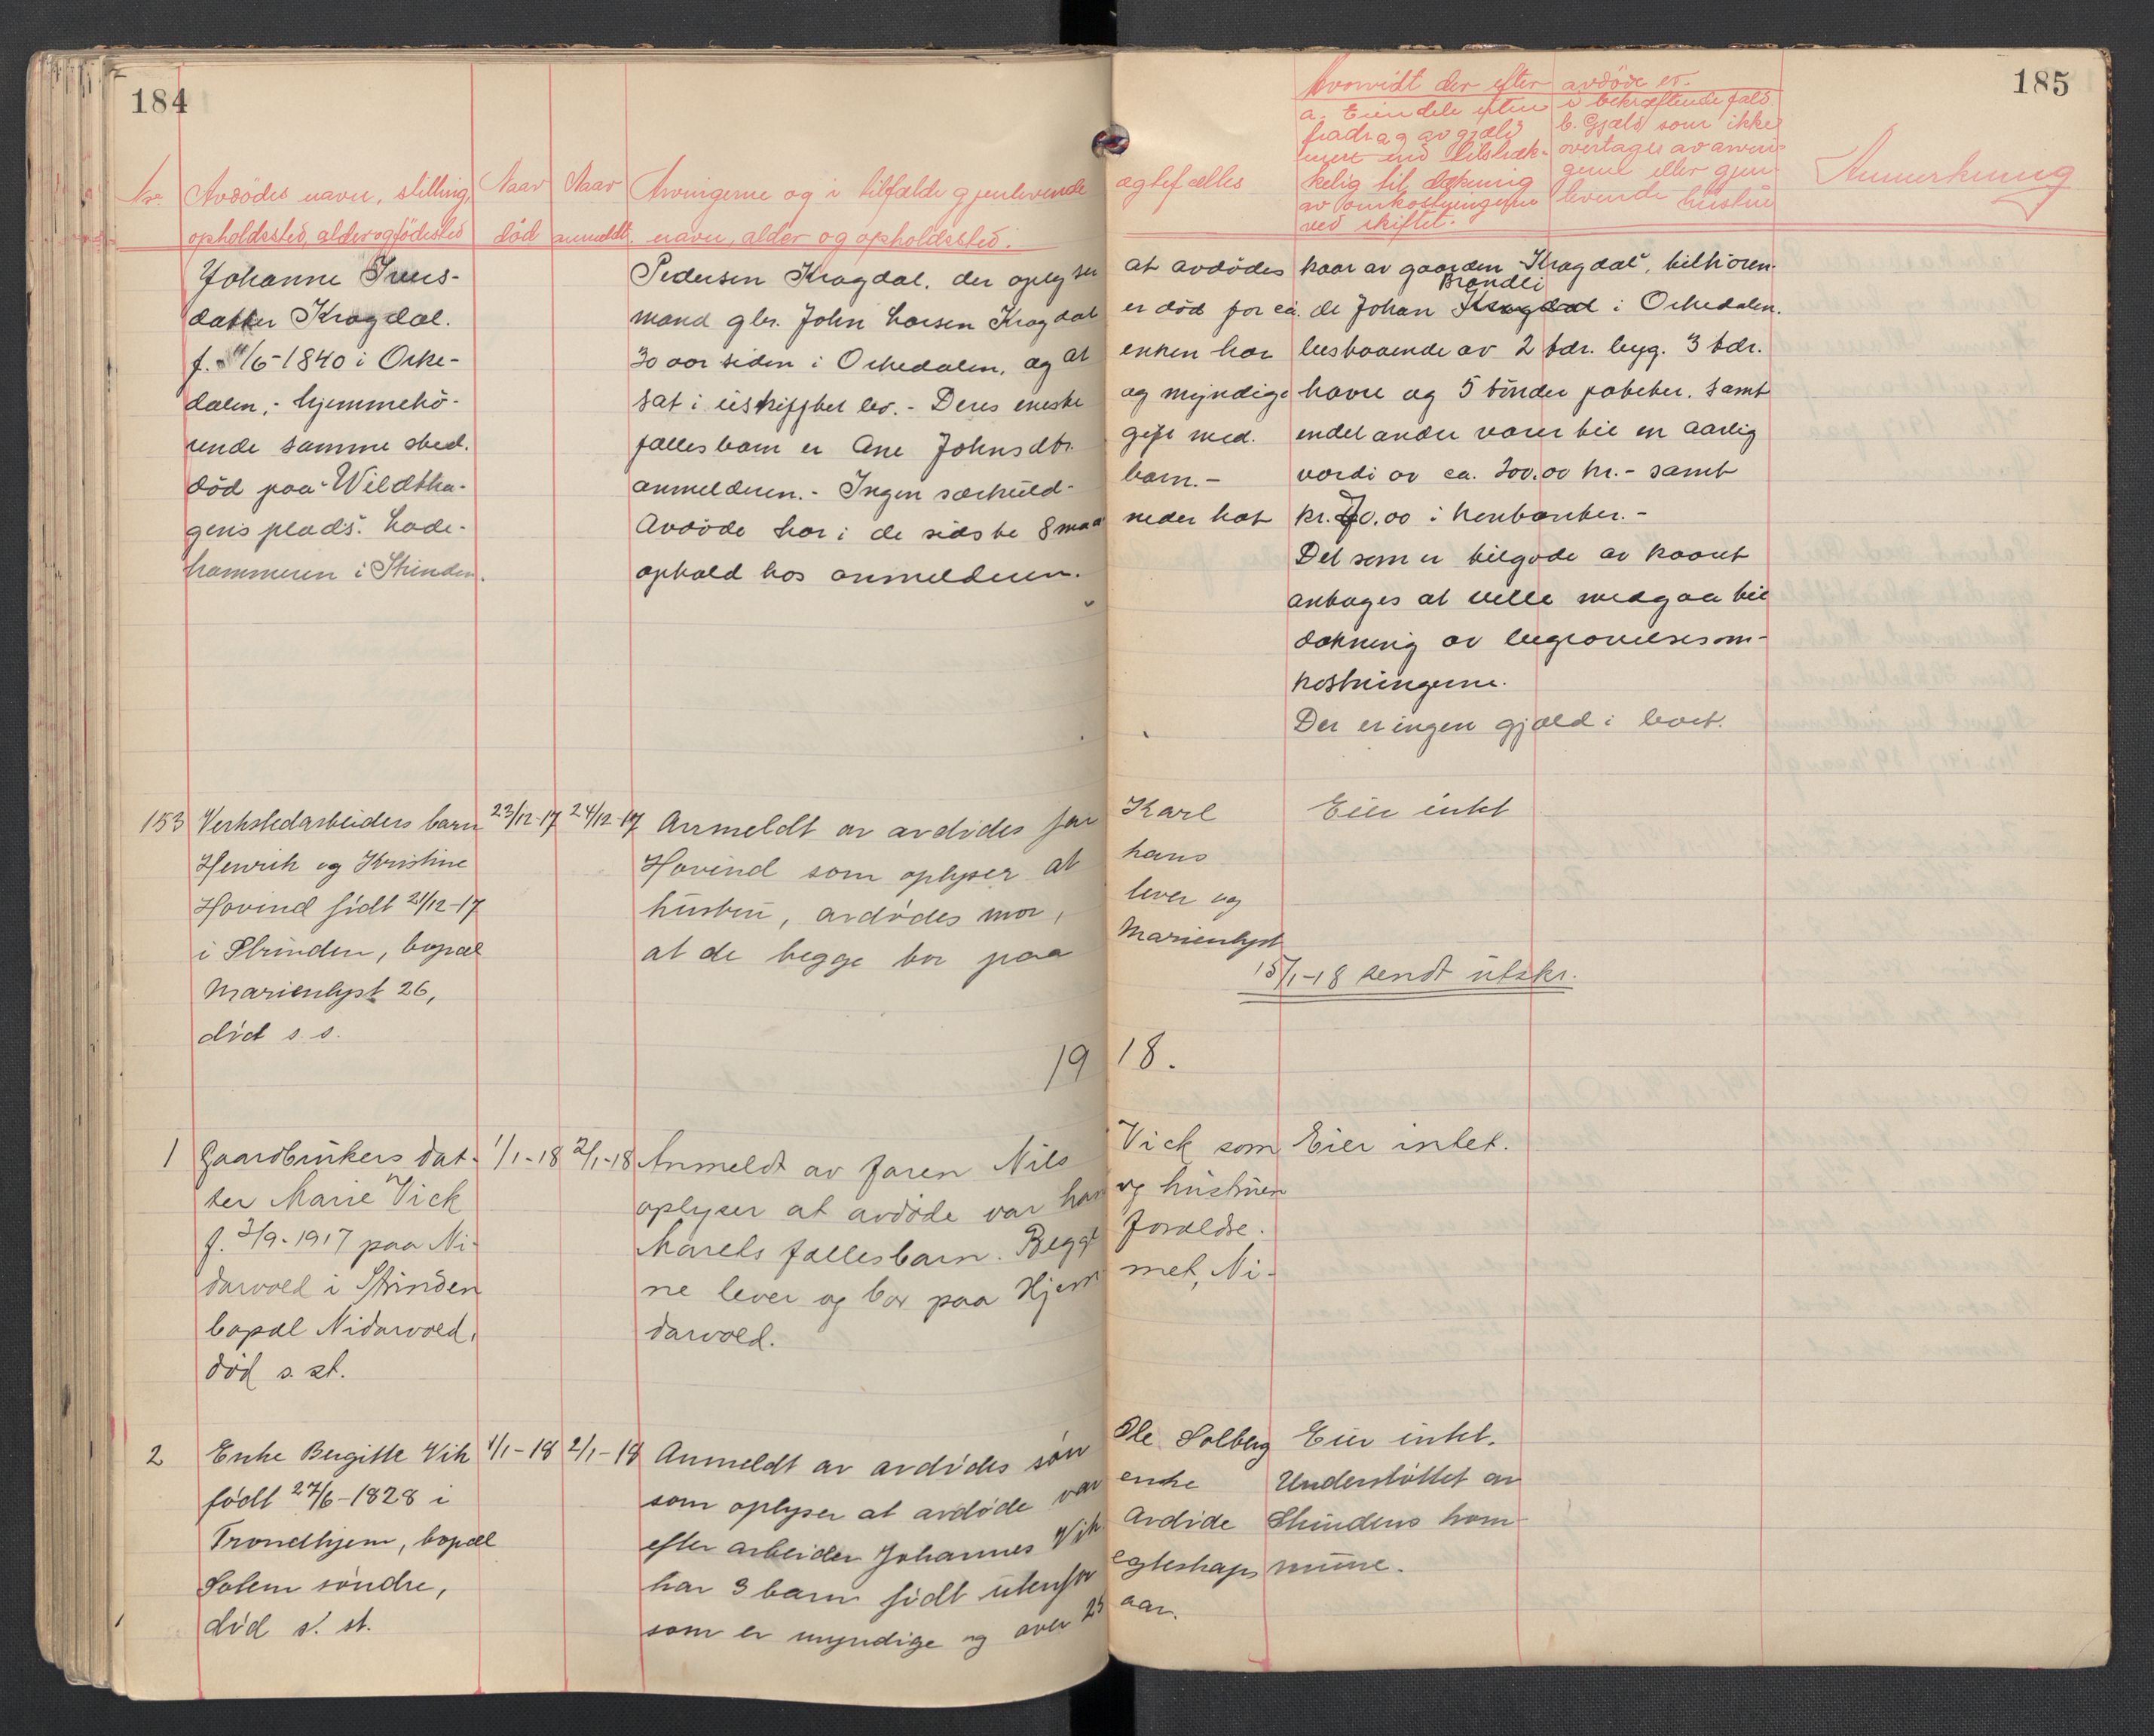 184
185
Nr.
Avdödes navn, stilling,
opholdssted, alder og födested
Naar
död
Naar
anmeldt.
Arvingerne og i tilfælde gjenlevende ægtefælles
navn, alder og opholdssted.
Hvorvidt der efter avdöde er.
a. Eiendele uten
fradrag av gjæld
mere end tilstræk-
kelig til dækning
av omkostningerne
ved skiftet.
i bekræftende fald
b. Gjæld som ikke
overtages av arvin-
gene eller gjen-
levende hustru
Anmerkning
Johanne Ivers-
datter Kragdal.
f. /6-1840 i Orke-
dalen,- hjemmehö-
rende samme sted.
död paa "Wildtha-
gens plads". Lade-
hammeren i Strinden.
Pedersen Kragdal. der oplyser at avdödes
mand gbr. John Larsen Kragdal er död for ca.
30 aar siden i Orkedalen, og at enken har
sat i uskiftet bo. - Deres eneste og myndige
fælles barn er Ane Johnsdtr. gift med.
anmelderen. - Ingen særkuld- barn. -
Avdöde har i de sidste 8 maaneder hat
ophold hos anmelderen.
kaar av gaarden "Kragdal", tilhören-
Brandli
de Johan Kragdal i Orkedalen.
bestaaende av 2 tdr. byg. 3 tdr.
havre og 5 tönder poteter. samt
endel andre varer til en aarlig
værdi av ca. 200.00 kr. - samt
kr. 70.00 i kontanter. -
Det som er tilgode av kaaret
antages at ville medgaa til
dækning av begravelsesom-
kostningerne.
Der er ingen gjæld i boet.
153 Verkstedarbeiders barn 23/12-17 24/12-17 Anmeldt av avdödes far Karl Eier intet
Henrik og Kristine
Hovind født 21/12-17
i Strinden, bopæl
Marienlyst 26,
död s. s.
Hovind som oplyser at hans
hustru, avdödes mor, lever og
at de begge bor paa Marienlyst
15/1-18 sendt utskr.
1918.
1 Gaardbrukers dat- 1/1-18 2/1-18 Anmeldt av faren Nils Vick som Eier intet.
ter Marie Vick
f. 3/9-1917 paa Ni-
darvold i Strinden
bopæl Nidarvold,
död s. st.
oplyser at avdöde var han og hustruen
Marets fællesbarn. Begge forældre-
ne lever og bor paa Hjemmet, Ni-
darvold.
2 Enke Bergitte Vik 1/1-18 2/1-18 Anmeldt av avdödes sön Ole Solberg Eier intet.
født 27/6-1828 i
Trondhjem, bopæl
Solem söndre,
död s. st.
som oplyser at avdöde var enke
efter arbeider Johannes Vik Avdöde
har 3 barn födt utenfor egteskap
som er myndige og over 25 aar.
Understöttet av
Strindens kom-
mune.